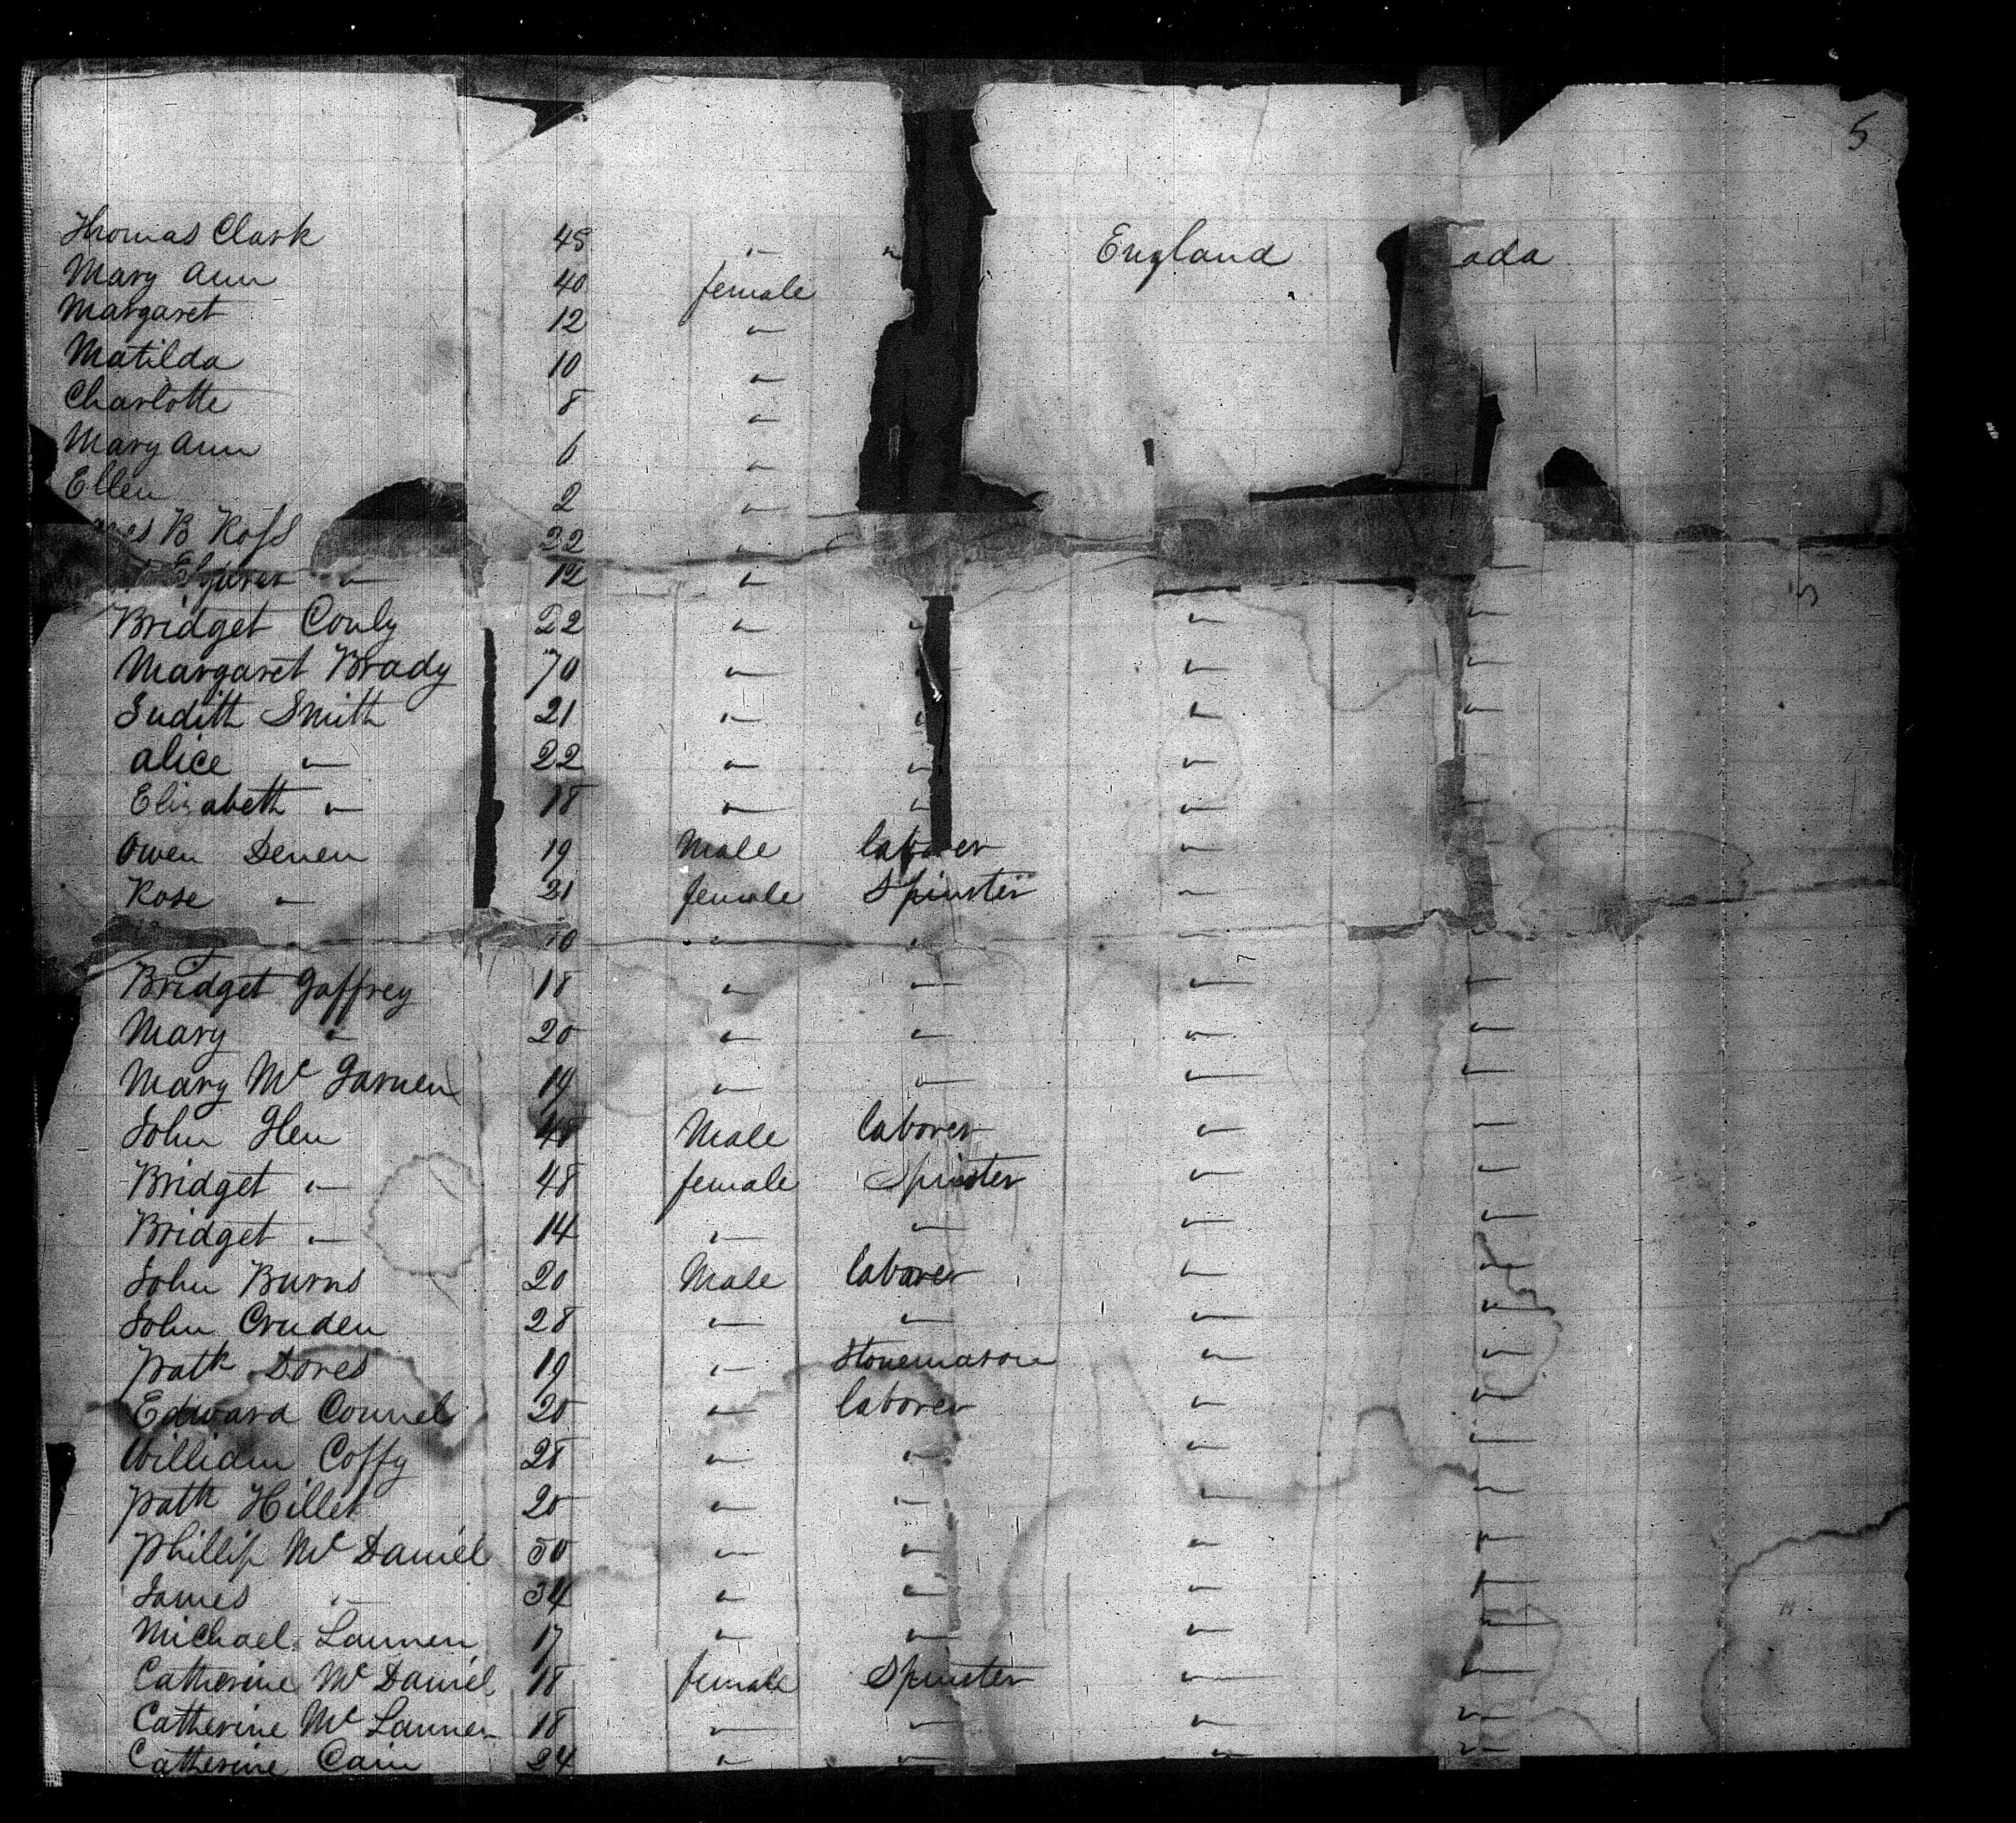 5
Thomas Clark 45 " " England ada
Mary Ann 40 female
Margaret 12 "
Matilda 10 "
Charlotte 8 "
Mary Ann 6 "
Ellen 2 "
B Ross 22 "
" 12 "
Bridget Conly 22 " " " "
Margaret Brady 70 " " "
Judith Smith 21 " " " "
Alice " 22 " " "
Elizabeth " 18 " " " "
Owen Denen 19 Male laborer "
Rose " 21 female Spinster "
" " " "
Bridget Gaffrey 18 " " " "
Mary " 20 " " " "
Mary Mc 14 " " " "
John Glen Male laborer " "
Bridget " 48 female Spinster " "
Bridget " 14 " " " "
John Burns 20 Male laborer " "
John Cruden 28 " " " "
Patk Dores 19 " Stonemason " "
Edward Connel 20 " laborer " "
William Coffy 28 " " " "
Patk 20 " " " "
Phillip Mc Daniel 50 " " " "
James " 34 " " " "
Michael Lannen 17 " " " "
Catherine Mc Daniel 18 female Spinster " "
Catherine Mc Lannen 18 " " " "
Catherine Cain 24 " " " "